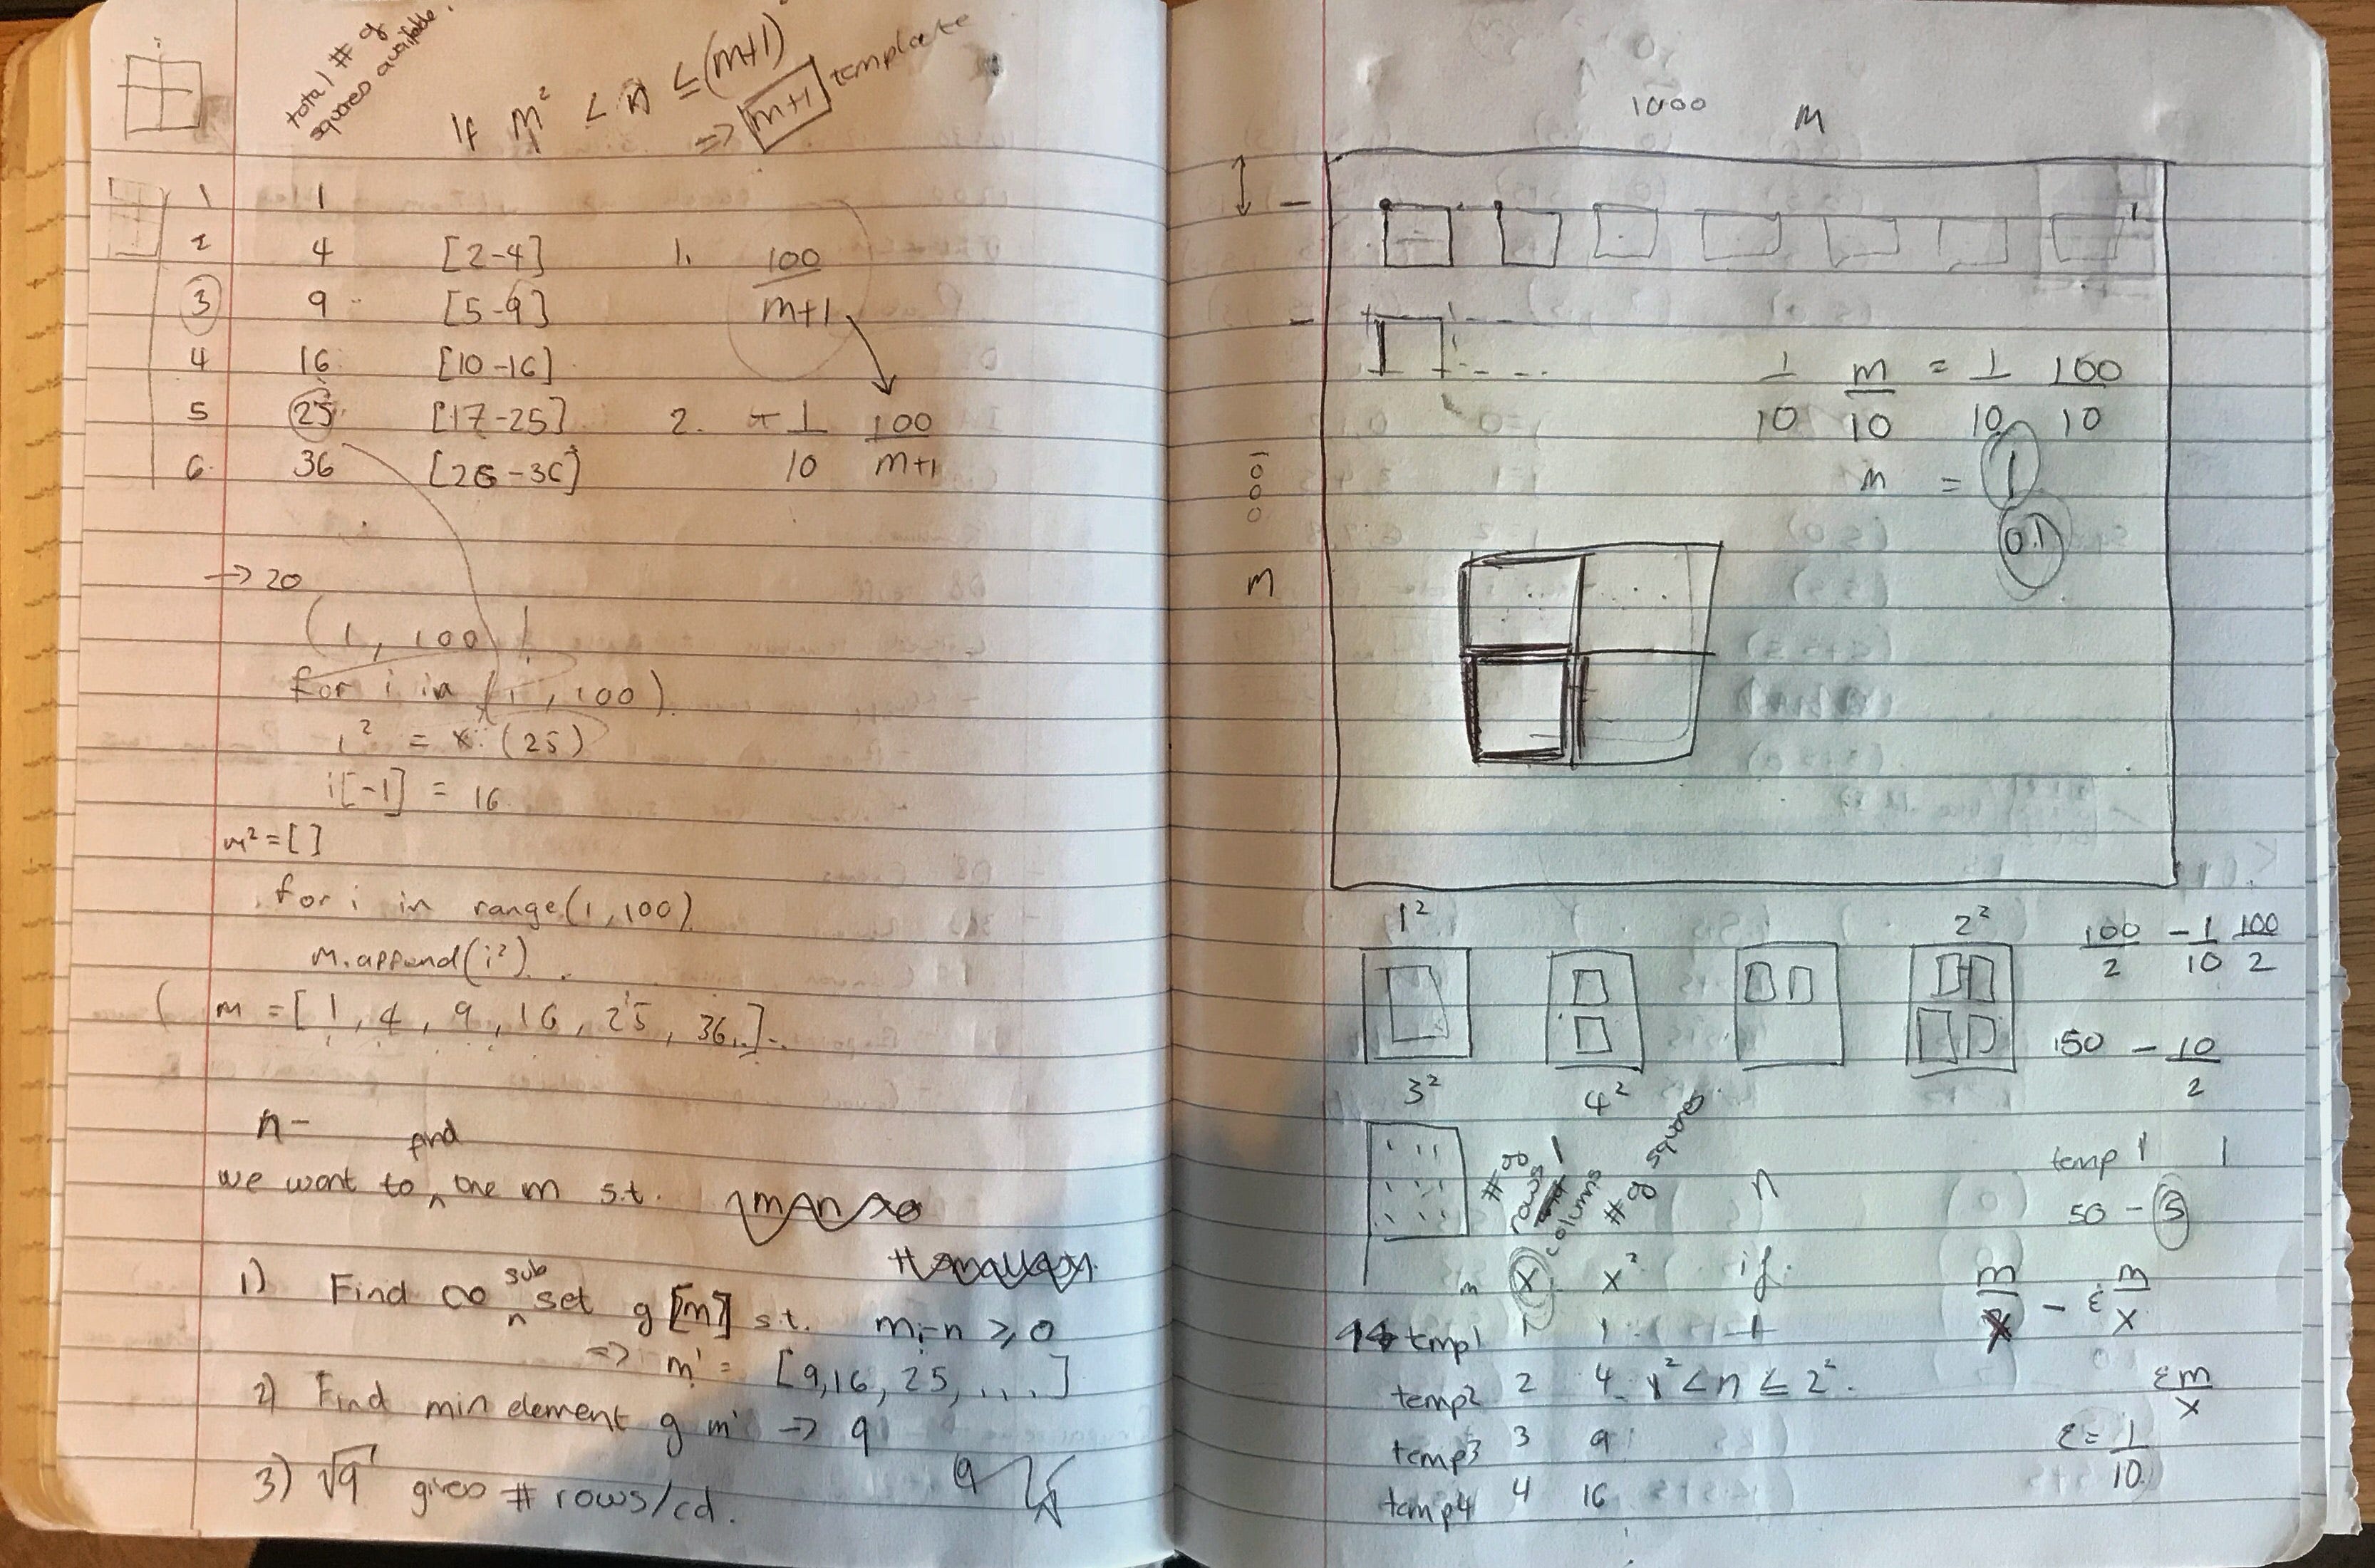 total # of
squares available.
If m² < n ≤ (m+1)²
=> m+1 template
1 1
2 4 [2-4]
3 9 [5-9]
4 16 [10-16]
5 25 [17-25]
6. 36 [26-36]
1. 100/m+1
2. - 1/10 100/m+1
→ 20
(1, 100)
for i in (1, 100)
i² = x (25)
i[-1] = 16
m² = [ ]
for i in range(1,100)
m.append(i²)
m = [1, 4, 9, 16, 25, 36, ..]
n -
we want to find one m s.t.
1) Find subset of [m] s.t. mᵢ-n ≥ 0
=> m' = [9,16, 25, ...]
2) Find min element of m' → 9
3) √9 gives # rows/col.
9
1000 m
1000
m
1/10 m/10 = 1/10 100/10
m = 1
0.1
1² 2²
100/2 - 1/10 100/2
50 - 10/2
3² 4²
# of
rows
columns
# of squares
n
temp 1 1
50 - 5
m x x² if
m/x - ε m/x
tmp1 1 1 1
temp2 2 4 1² < n ≤ 2².
εm/x
temp3 3 9
ε = 1/10
temp4 4 16